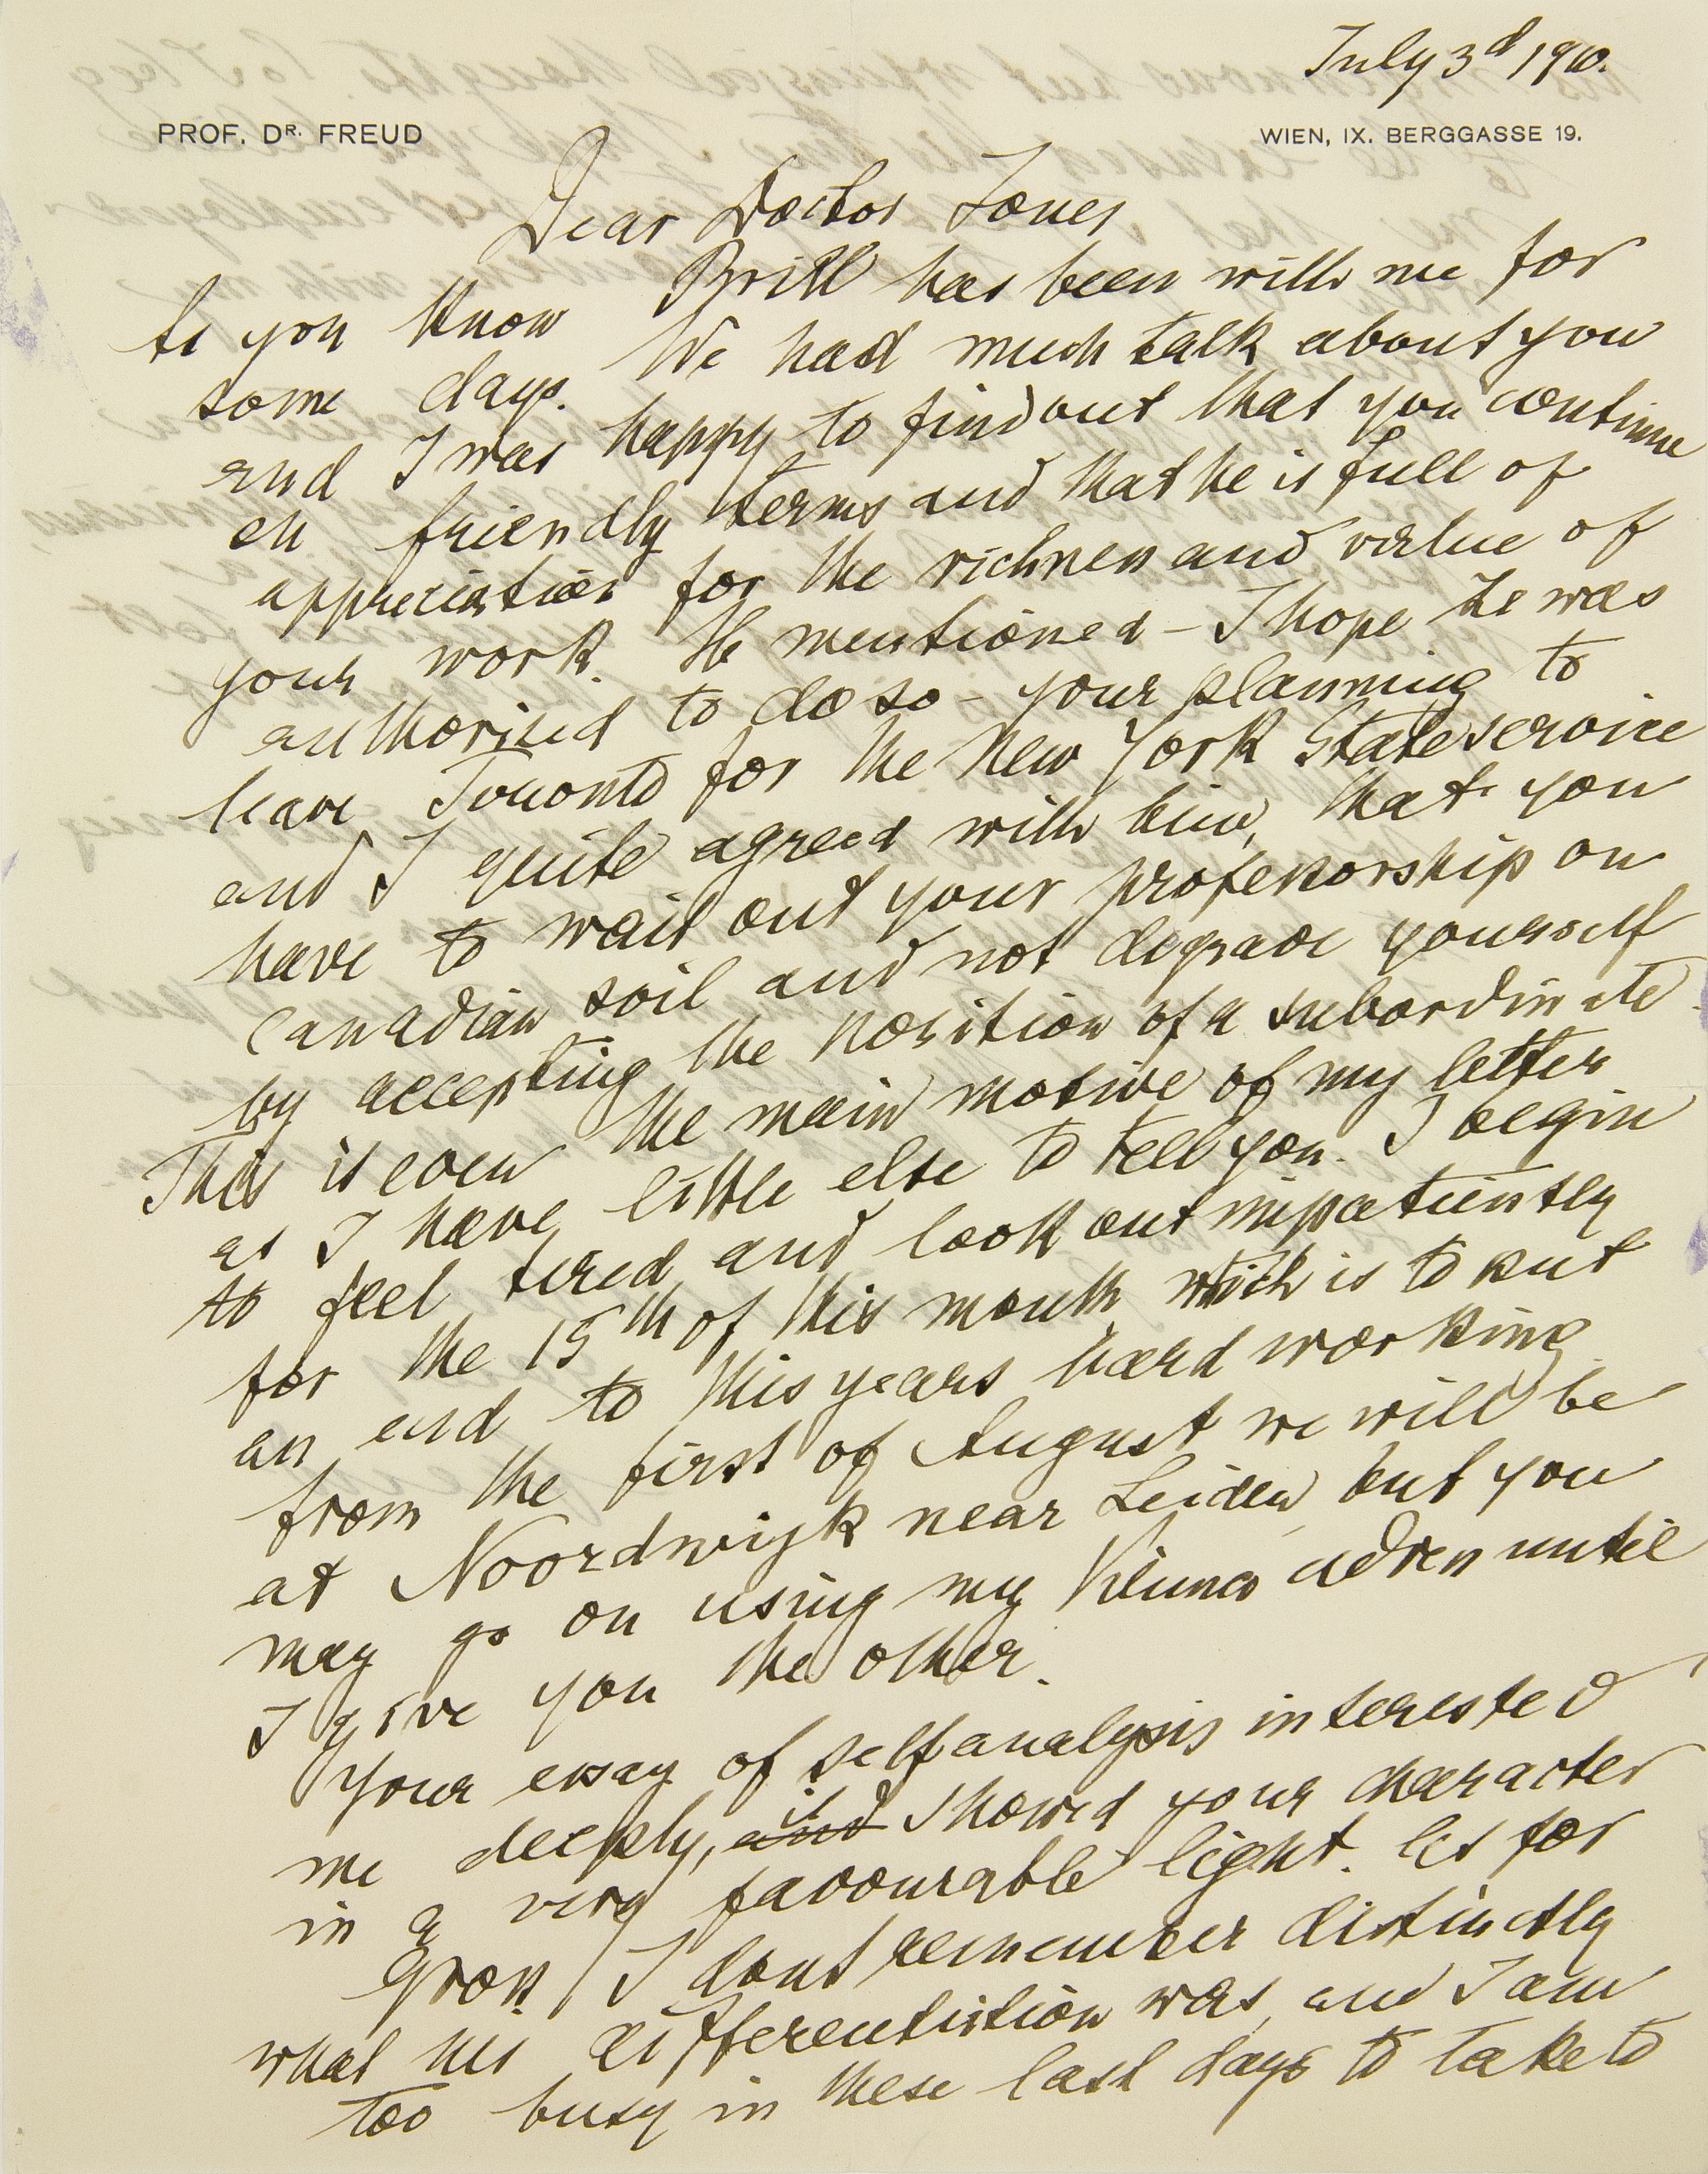 July 3d 1910.
PROF. DR. FREUD
WIEN, IX. BERGGASSE 19.
Dear Doctor Jones
As you know Brill has been with me for
some days. We had much talk about you
and I was happy to find out that you continue
on friendly terms and that he is full of
appreciation for the richness and value of
your work. He mentioned – I hope he was
authorised to do so – your planning to
leave Toronto for the New York State service
and I quite agreed with him, that you
have to wait out your professorship on
Canadian soil and not degrade yourself
by accepting the position of a subordinate.
This is even the main motive of my letter
as I have little else to tell you. I begin
to feel tired and look out impatiently
for the 15th of this month which is to put
an end to this years hard working.
from the first of August we will be
at Noordwijk near Leiden, but you
may go on using my Vienna adress until
I give you the other.
Your essay of selfanalysis interested
me deeply, and it showed your character
in a very favourable light. As for
Gross, I dont remember distinctly
what his differentiation was, and I am
too busy in these last days to take to